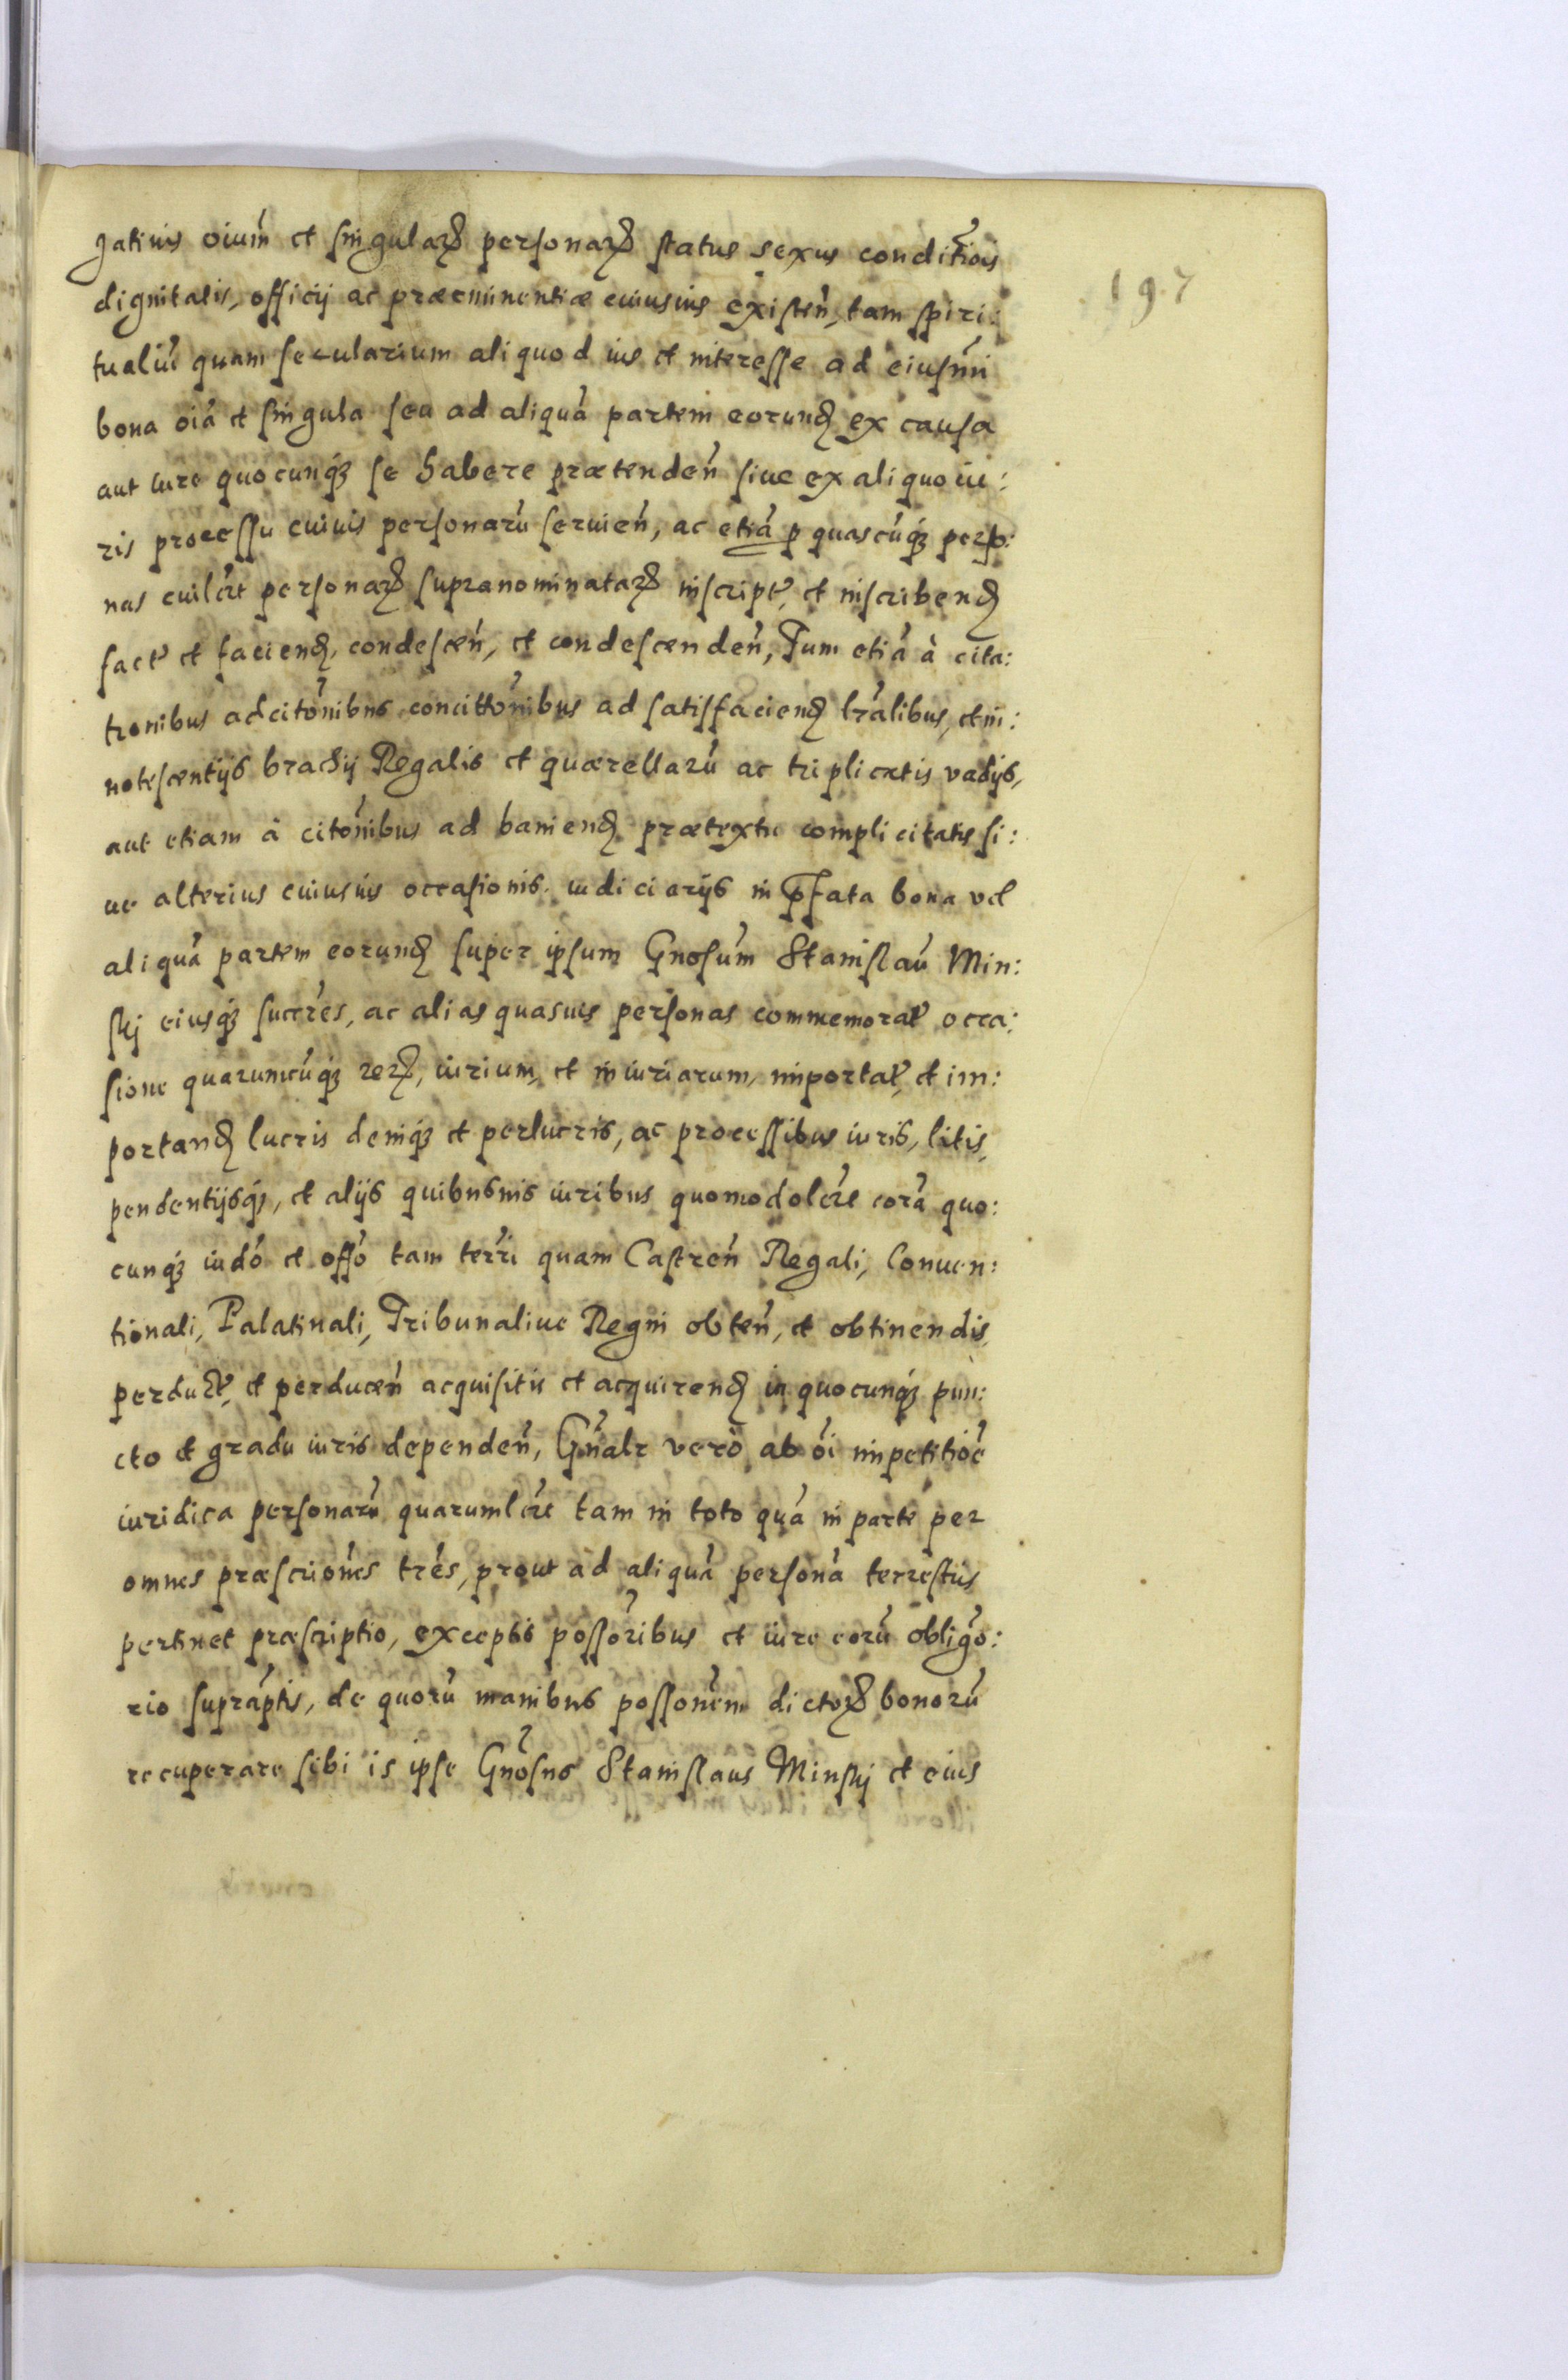 gatiuis oium̃ et singularꝝ personarꝝ status sexus conditiõis
197
dignitatis, officij ac præeminentiæ cuiusuis existeñ, tam spiri:
tualiũ quam secularium aliquod ius et interesse ad eiusmi
bona oiã et singula seu ad aliquã partem eorund ex causa
aut iure quocunqꝫ se habere prætendeñ siue ex aliquo iu:
ris processu cuiuis personarũ seruień, ac etiã ꝑ quascũqꝫ perso:
nas cuilr̃t personarꝝ supranominatarꝝ inscript, et inscribend
fact et faciend, condesceñ, et condescendeñ, Tum etiã à cita:
tionibus adcitõnibus concittõnibus ad satisfaciend lrãlibus, et in:
notescentijs brachij Regalis et quærellarũ ac triplicatis vadijs,
aut etiam à citõnibus ad baniend prætextu complicitatis si:
ue alterius cuiusuis occasionis iudiciarijs in p̃fata bona vel
aliquã partem eorund super ipsum Gnosum̃ Stanislaũ Min:
skj eiusqꝫ succr̃es, ac alias quasuis personas commemorat occa:
sione quarumcũqꝫ rerꝝ, iurium, et iniuriarum, importat, et im:
portand lucris deniqꝫ et perlucris, ac processibus iuris, litis,
pendentijsqꝫ, et alijs quibusuis iuribus quomodolr̃t corã quo:
cunqꝫ iudõ et offõ tam terr̃i quam Castreñ Regali, Conuen:
tionali, Palatinali, Tribunaliue Regni obteñ, et obtinendis,
perduct, et perduceñ acquisitis et acquirend in quocunqꝫ pun:
cto et gradu iuris dependeñ, Gñalr verò ab oĩ impetitiõe
iuridica personarũ quarumlr̃t tam in toto quã in parte per
omnes præscriõnes trẽs, prout ad aliquã personã terrestris
pertinet præscriptio, exceptis possor̃ibus et iure eorũ obligõ:
rio suprap̃tis, de quorũ manibus possonẽm dictorꝝ bonorũ
recuperare sibi is ipse Gnõsus Stanislaus Minskj et eius